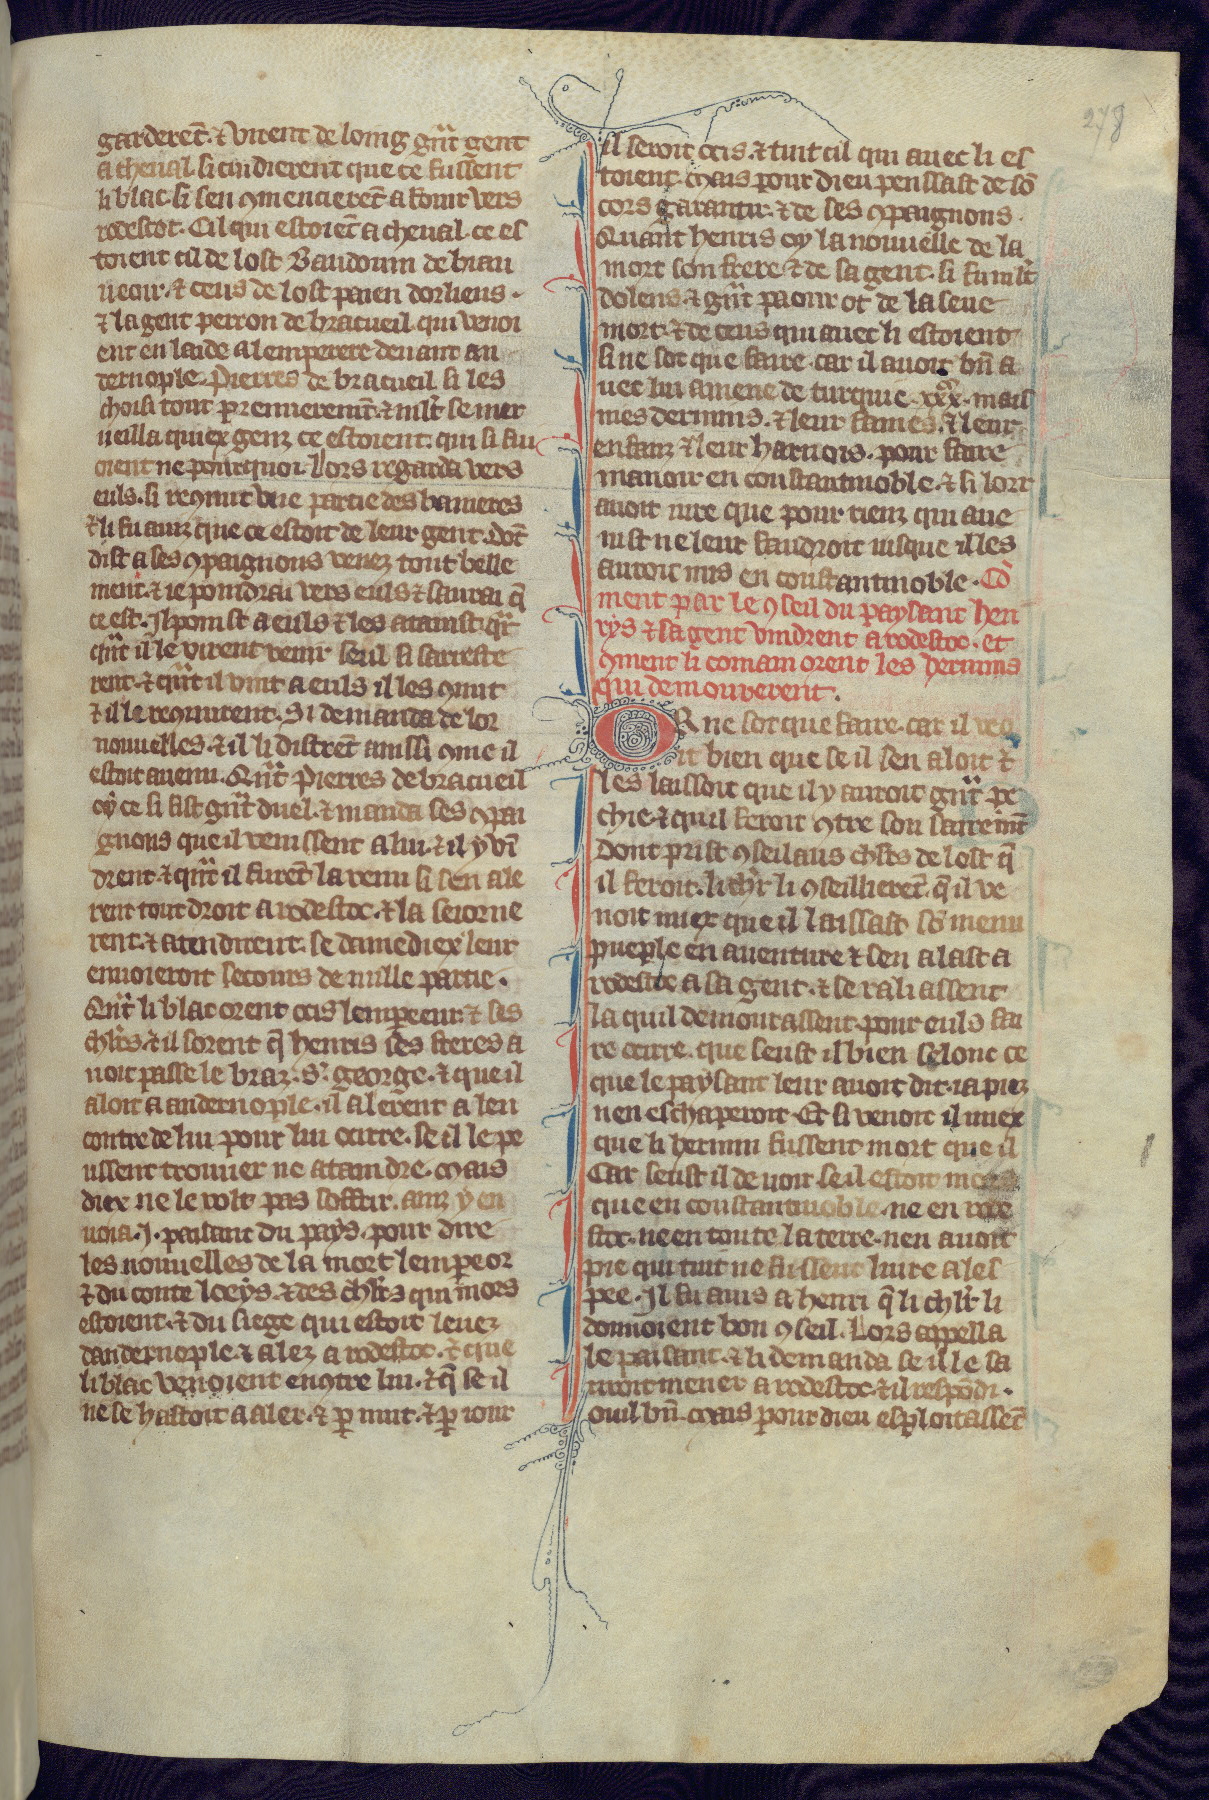 278
garderēt. ⁊ virent de loing grāt gent
a cheual. si cuidierent que ce fussent
li blac. si sen ꝯmencierēt a fouir vers
rodestoc. Cil qui estoiēt a cheual. ce es
toient cil de lost Baudouin de biau
ueoir. ⁊ ceus de lost paien dorliens.
⁊ la gent perron de bracueil. qui venoi
ent en laide a lemperere deuant an
dernople. Pierres de bracueil si les
choisi tout premieremt̄. ⁊ mlt̄ se mer
ueilla quiex genz ce estoient. qui si fu
oient ne pourquoi. Lors regarda vers
euls. si reꝯnut vne partie des banieres
⁊ li fu auis que ce estoit de leur gent. dōt
dist a ses ꝯpaignons venez tout belle
ment. ⁊ ie poindrai vers euls ⁊ saurai q̄
ce est. Il point a euls ⁊ les ataint. qr̄t
qr̄t il le virent venir seul si sarreste
rent. ⁊ qr̄t il vint a euls il les ꝯnut
⁊ il le reꝯnurent. Si demanda de lor
nouuelles. ⁊ il li distrēt aussi ꝯme il
estoit auenu. Qr̄t Pierres de bracueil
oy ce si fist grāt duel. ⁊ manda ses ꝯpai
gnons que il venissent a lui. ⁊ il y vī
drent. ⁊ qr̄t il furēt la venu si sen ale
rent tout droit a rodestoc. ⁊ la seiorne
rent. ⁊ atendirent. se damediex leur
enuoieroit secours de nulle partie.
Qr̄t li blac orent ocis lempereur. ⁊ ses
chlr̄s. ⁊ il sorent q̄ henris ses freres a
uoit passe le braz. S. george. ⁊ que il
aloit a andernople. il alerēt a len
contre de lui pour lui ocirre. se il le pe
ussent trouuer ne ataindre. Mais
diex ne le volt pas soffrir. ainz y en
uoia .I. paisant du pays. pour dire
les nouuelles de la mort lempeor
⁊ du conte loeys. ⁊ des chlr̄s qui mors
estoient. ⁊ du siege qui estoit leuez
dandernople. ⁊ alez a rodestoc. ⁊ que
li blac venoient enꝯtre lui. ⁊ q̄ se il
ne se hastoit a aler. ⁊ ꝑ nuit. ⁊ ꝑ iour
il seroit ocis. ⁊ tuit cil qui auec li es
toient. Mais pour dieu penssast de sō
cors garantir. ⁊ de ses ꝯpaignons.
Quant henris oy la nouuelle de la
mort son frere. ⁊ de sa gent. si fu mlt̄
dolens. ⁊ grāt paour ot de la seue
mort. ⁊ de ceus qui auec li estoient
si ne sot que faire. car il auoit bn̄ a
uec lui amene de turquie .xxx. mais
mes dermins. ⁊ leur fames. ⁊ leur
enfanz ⁊ leur harnois. pour faire
manoir en constantinoble. ⁊ si lor
auoit iure que pour rienz qui aue
nist ne leur faudroit iusque il les
auroit mis en constantinoble. Cō
ment par le ꝯseil du paysant hen
rys ⁊ sa gent vindrent a rodestoc. et
ꝯment li comain orent les dermins
qui demourerent.
OR ne sot que faire. car il veo
it bien que se il sen aloit ⁊
les laissoit que il y auroit grāt pe
chie. ⁊ quil feroit ꝯtre son sairemt̄
Dont prist ꝯseil aus chlr̄s de lost q̄
il feroit. li chlr̄ li ꝯseillierēt. q̄ il ve
noit miex que il laissast sō menu
pueple en auenture ⁊ sen alast a
rodestoc a sa gent. ⁊ se raliassent
la quil demourassent. pour euls fai
re ocirre. que seust il bien selonc ce
que le paysant leur auoit dit. ia piez
nen eschaperoit. Et si venoit il miex
que li hermin fussent mort que il
Car seust il de uoir se il estoit mors
que en constantinoble. ne en rode
stoc. ne en toute la terre. nen auroit
pie qui tuit ne fussent liure a les
pee. Il fu auis a henri q̄ li chlr̄ li
donnoient bon ꝯseil. Lors appella
le paisant. ⁊ li demanda se il le sa
uroit mener a rodestoc. ⁊ il respōdi.
ouil bn̄. Mais pour dieu esploitassēt